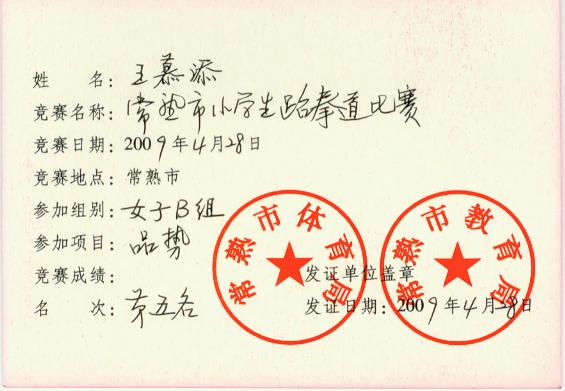 姓 名：王慕添
竞赛名称：常熟市小学生跆拳道比赛
竞赛日期：2009年4月28日
竞赛地点：常熟市
参加组别：女子B组
参加项目：品势
竞赛成绩：
名 次：第五名
常熟市体育局
常熟市教育局
发证单位盖章
发证日期：2009年4月28日